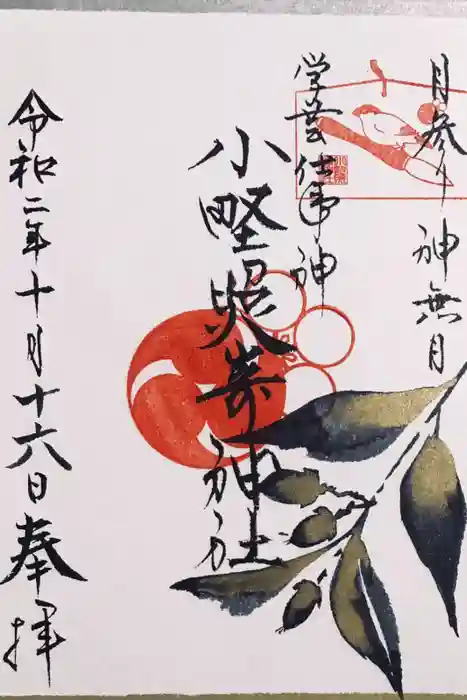 月参り 神無月
学芸 仕事神
小野照崎神社
令和二年十月十六日奉拝